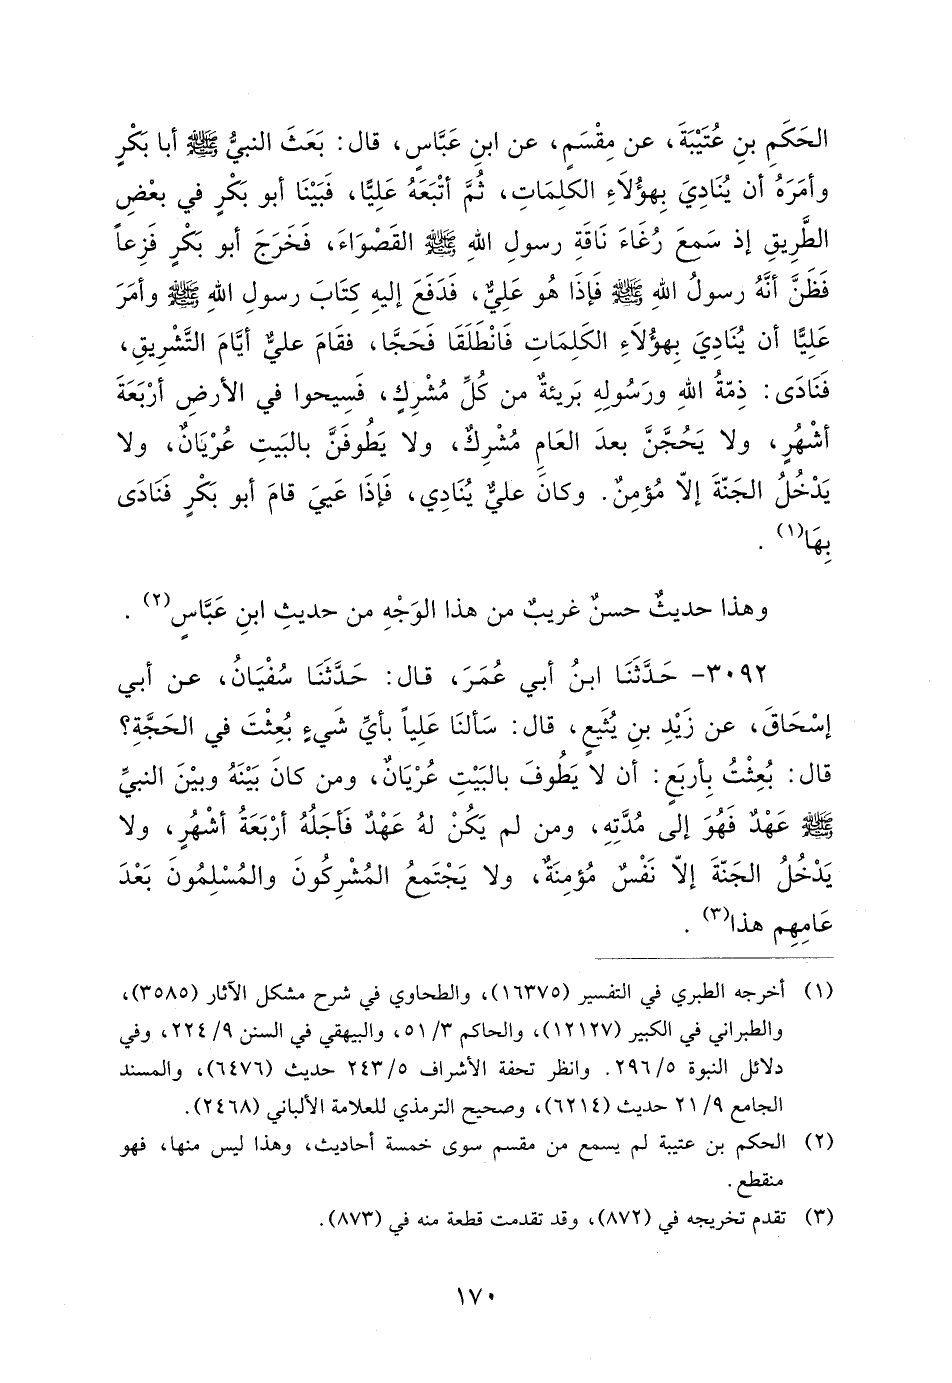 الحَكَمِ بنِ عُتَيْبَةَ، عن مِقْسَمٍ، عن ابنِ عَبَّاسٍ، قال: بَعَثَ النبيُّ ﷺ أبا بَكْرٍ
وأمَرَهُ أن يُنَادِيَ بِهؤُلَاءِ الكلِمَاتِ، ثُمَّ أتْبَعَهُ عَلِيًّا، فَبَيْنَا أبو بَكْرٍ في بعْضِ
الطَّرِيقِ إذ سَمِعَ رُغَاءَ نَاقَةِ رسولِ اللهِ ﷺ القَصْوَاءَ، فَخَرَجَ أبو بَكْرٍ فَزِعاً
فَظَنَّ أنَّهُ رسولُ اللهِ ﷺ فَإذَا هُو عَلِيٌّ، فَدَفَعَ إليهِ كِتَابَ رسولِ اللهِ ﷺ وأمَرَ
عَلِيًّا أن يُنَادِيَ بِهؤُلَاءِ الكَلِمَاتِ فَانْطَلَقَا فَحَجَّا، فقَامَ عليٌّ أيَّامَ التَّشْرِيقِ،
فَنَادَى: ذِمّةُ اللهِ ورَسُولِهِ بَرِيئةٌ من كُلِّ مُشْرِكٍ، فَسِيحوا في الأرضِ أرْبَعَةَ
أشْهُرٍ، ولا يَحُجَّنَّ بعدَ العَامِ مُشْرِكٌ، ولا يَطُوفَنَّ بالبَيتِ عُرْيَانٌ، ولا
يَدْخُلُ الجَنّةَ إلاّ مُؤمِنٌ. وكانَ عليٌّ يُنَادِي، فَإذَا عَيِيَ قامَ أبو بَكْرٍ فَنَادَى
بِهَا(١) .
وهذا حديثٌ حسنٌ غريبٌ من هذا الوَجْهِ من حديثِ ابنِ عَبَّاسٍ(٢) .
٣٠٩٢- حَدَّثَنَا ابنُ أبي عُمَرَ، قال: حَدَّثَنَا سُفْيَانُ، عن أبي
إسْحَاقَ، عن زَيْدِ بنِ يُثَيعٍ، قال: سَألنَا عَلِياً بأيِّ شَيءٍ بُعِثْتَ في الحَجَّةِ؟
قال: بُعِثْتُ بِأربَعٍ: أن لا يَطُوفَ بالبَيْتِ عُرْيَانٌ، ومن كانَ بَيْنَهُ وبيْنَ النبيِّ
ﷺ عَهْدٌ فَهُوَ إلى مُدَّتِهِ، ومن لم يَكُنْ لهُ عَهْدٌ فَأجَلُهُ أرْبَعَةُ أشْهُرٍ، ولا
يَدْخُلُ الجَنّةَ إلاّ نَفْسٌ مُؤمِنةٌ، ولا يَجْتَمِعُ المُشْرِكُونَ والمُسْلِمُونَ بَعْدَ
عَامِهِم هذا(٣) .
(١) أخرجه الطبري في التفسير (١٦٣٧٥)، والطحاوي في شرح مشكل الآثار (٣٥٨٥)،
والطبراني في الكبير (١٢١٢٧)، والحاكم ٥١/٣، والبيهقي في السنن ٢٢٤/٩، وفي
دلائل النبوة ٢٩٦/٥. وانظر تحفة الأشراف ٢٤٣/٥ حديث (٦٤٧٦)، والمسند
الجامع ٢١/٩ حديث (٦٢١٤)، وصحيح الترمذي للعلامة الألباني (٢٤٦٨).
(٢) الحكم بن عتيبة لم يسمع من مقسم سوى خمسة أحاديث، وهذا ليس منها، فهو
منقطع.
(٣) تقدم تخريجه في (٨٧٢)، وقد تقدمت قطعة منه في (٨٧٣).
١٧٠